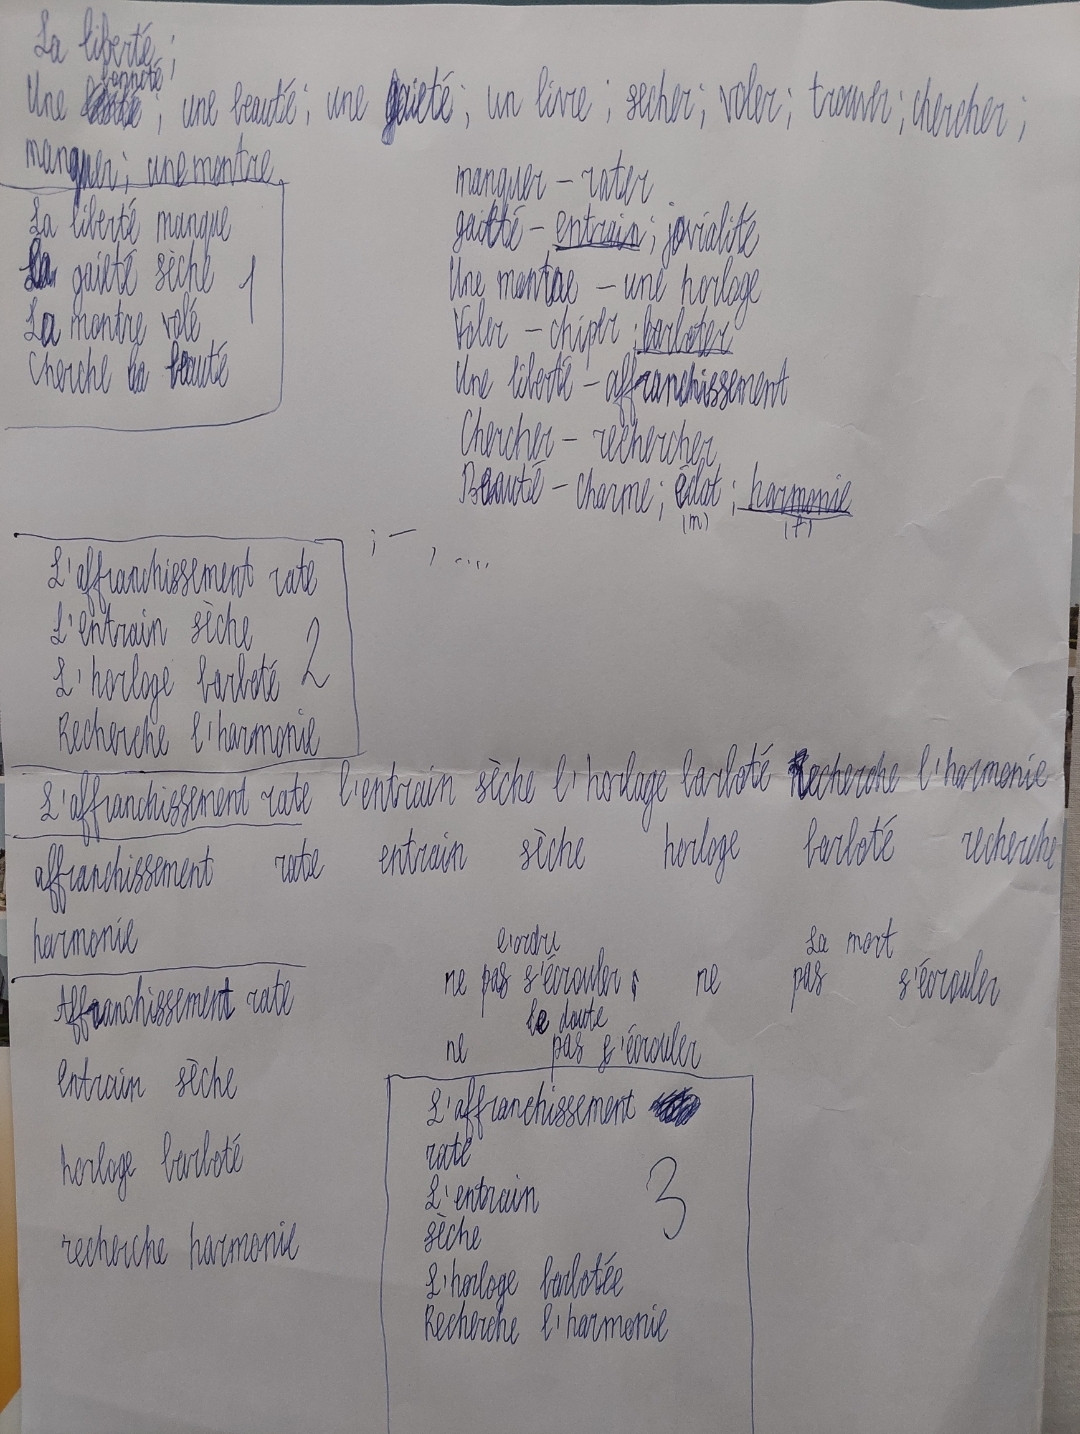 La liberté ;
bonneté
Une ; une beauté ; une gaieté ; un livre ; sécher ; voler ; trouver ; chercher ;
manquer ; une montre
La liberté manque
La gaieté sèche
La montre volé
Cherche la beauté
1
manquer – rater
gaieté – entrain ; jovialité
Une montre – une horloge
Voler – chiper ; barboter
Une liberté – affranchissement
Chercher – rechercher
Beauté – charme ; éclat ; harmonie
(m) (f)
; – , ....
L'affranchissement rate
L'entrain sèche
L'horloge barboté
Recherche l'harmonie
2
L'affranchissement rate l'entrain sèche l'horloge barboté Recherche l'harmonie
affranchissement rate entrain sèche horloge barboté recherche
harmonie
Affranchissement rate
entrain sèche
horloge barboté
recherche harmonie
La mort
ne pas s'écrouler ne pas s'écrouler
le doute
ne pas s'écrouler
L'affranchissement
rate
L'entrain
sèche
L'horloge barbotée
Recherche l'harmonie
3